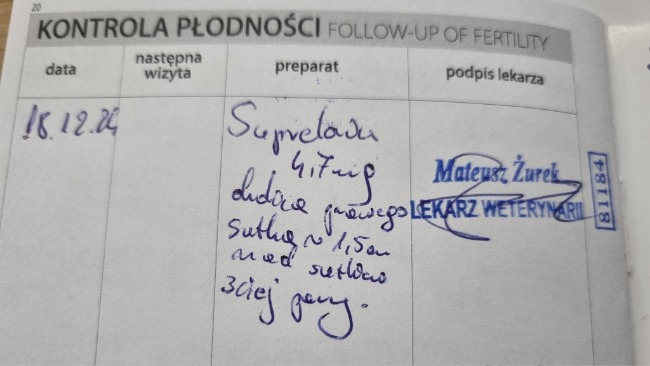 20
KONTROLA PŁODNOŚCI FOLLOW-UP OF FERTILITY
data
następna
wizyta
preparat
podpis lekarza
18.12.24
Suprelorin
4,7mg
okolica prawego
sutka ~ 1,5cm
nad sutkiem
3ciej pary.
Mateusz Żurek
LEKARZ WETERYNARII
81184